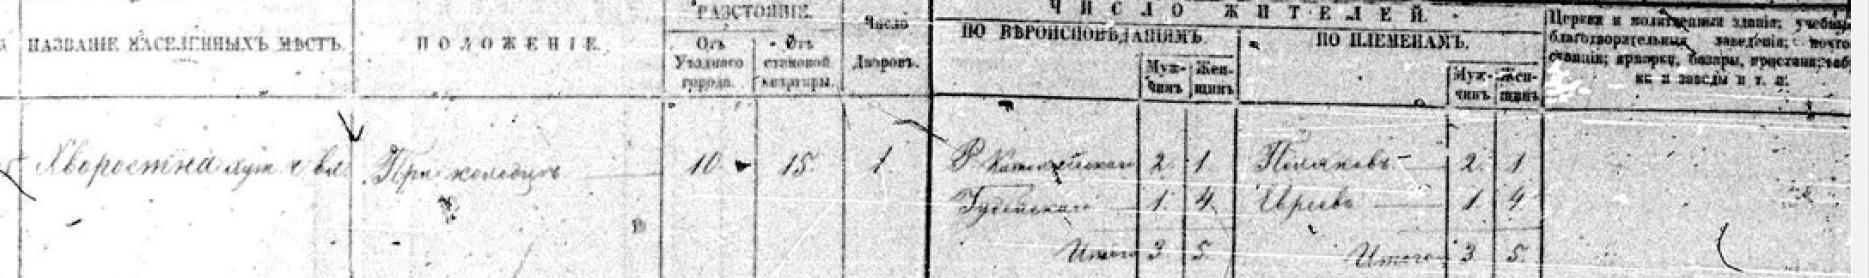 НАЗВАНІЕ НАСЕЛЕННЫХЪ МѢСТЪ.
ПОЛОЖЕНІЕ.
РАЗСТОЯНІЕ.
Отъ Уѣзднаго города.
Отъ становой квартиры.
Число Дворовъ.
ЧИСЛО ЖИТЕЛЕЙ.
ПО ВѢРОИСПОВѢДАНІЯМЪ.
Муж-
чинъ
Жен-
щинъ
ПО ПЛЕМЕНАМЪ.
Муж-
чинъ
Жен-
щинъ
Церкви и молитвенныя зданія; учебныя
благотворительныя заведенія; почто
станціи; ярмарки, базары, пристани; фаб
ки и заводы и т. п.
Хворостна хут. При колодцѣ 10 15. 1. Р Католическаго 2 1 Поляковъ 2 1
Іудейскаго 1 4 Евреевъ 1 4
Итого 3 5 Итого 3 5